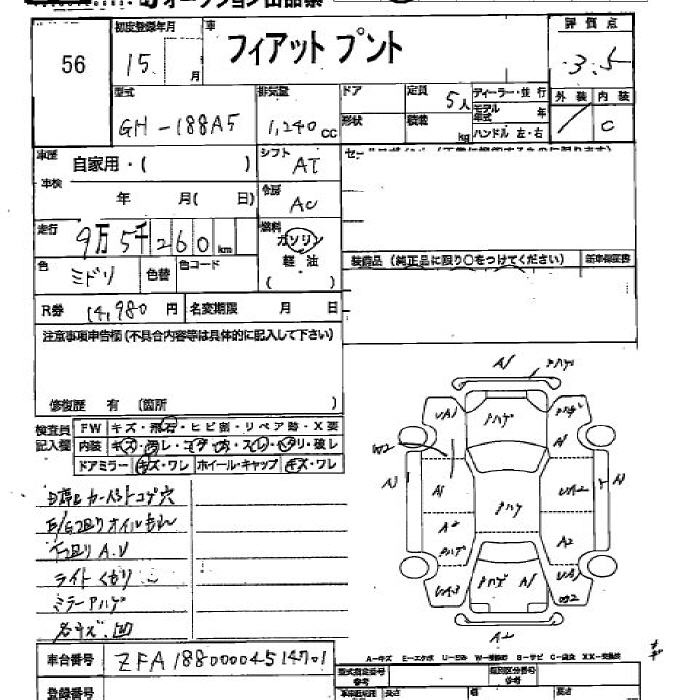 オークション出品票
56
初度登録年月
15
月
車
フィアット プント
評価点
3.5
型式
GH-188A5
排気量
1,240 cc
ドア
形状
定員
5人
積載
kg
ディーラー・並行
モデル年式
年
ハンドル 左・右
外装
内装
C
車歴
自家用・( )
車検
年 月( 日)
シフト
AT
冷房
AC
走行
9万5千260 km
燃料
ガソリン
軽油
( )
色
ミドリ
色替
色コード
R券
14,980 円
名変期限 月 日
装備品 (純正品に限り○をつけてください)
新車保証書
注意事項申告欄(不具合内容等は具体的に記入して下さい)
修復歴 有 (箇所 )
検査員記入欄
FW キズ・飛石・ヒビ割・リペア跡・X要
内装 キズ・ヨゴレ・コゲ・穴・スレ・ヘタリ・破レ
ドアミラー キズ・ワレ ホイール・キャップ キズ・ワレ
E/G廻りオイルもれ
下廻り A.U
ライトくもり
ミラーAハゲ
各キズ、凹
車台番号
ZFA18800004514701
登録番号
A1
ハゲ
UA1
A1
W2
A1
A1
A2
UA2
A2
UA3
UA1
W2
A1
A2
A-キズ E-エクボ U-凹み W-補修跡 S-サビ C-腐食 XX-交換済
型式指定番号
参考
類別区分番号
参考
長さ
幅
高さ